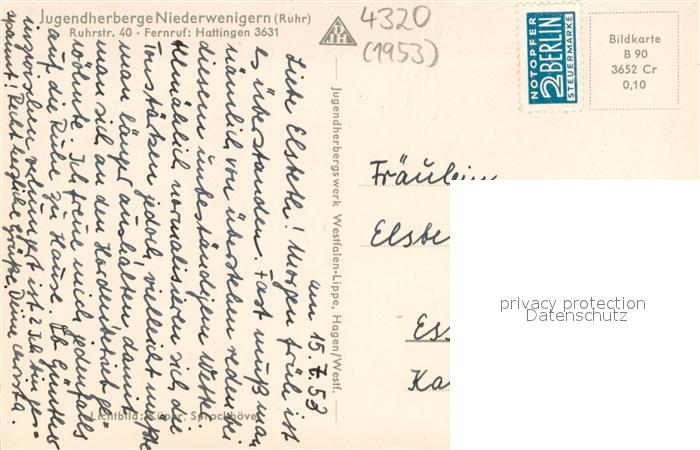 Jugendherberge Niederwenigern (Ruhr)
Ruhrstr. 40 · Fernruf: Hattingen 3631
4320
(1953)
NOTOPFER
2 BERLIN
STEUERMARKE
Bildkarte
B 90
3652 Cr
0,10
am 15.7.53
Liebe Elsbeth! Morgen früh ist
es überstanden. Fast muß man
nämlich von überstehen reden bei
diesem unbeständigen Wetter.
Allmählich normalisieren sich die
jedoch, vielleicht müßte
man länger aushalten damit
man sich an den Hordenbetrieb ge-
wöhnte. Ich freue mich jedenfalls
auf die Ruhe zu Hause. Ob Günther
inzwischen ist? Ich bin ges-
pannt! Recht herzliche Grüße, Deine
Jugendherbergswerk Westfalen-Lippe, Hagen/Westf.
Lichtbild: Küper, Sprockhövel
Fräulein
Elsbe
Ess
Ka
privacy protection
Datenschutz